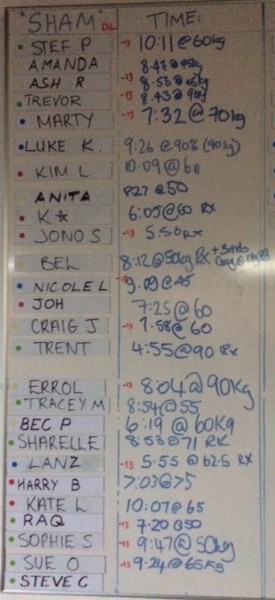 "SHAM" DL TIME:
STEF P -13 10:11@60kg
AMANDA 8:47@45kg
ASH R -13 8:56@45kg
TREVOR -13 8:43@90kg
MARTY -13 7:32@70kg
LUKE K. 9:26@90% (90kg)
KIM L 10:09@60
ANITA 827@50
K☆ 6:05@60 RX
JONO S -13 5:56RX
BEL 8:12@50kg RX
NICOLE L -13 9:09@45
JOH 7:25@60
CRAIG J -13 7:58@60
TRENT 4:55@90 Rx
ERROL -13 8:04@90kg
TRACEY M 8:54@55
BEC P 6:19@60kg
SHARELLE 8:53@71 RX
LANZ -13 5:55@62.5 RX
HARRY B 7:03@75
KATE L 10:07@65
RAQ -13 7:20@50
SOPHIE S -13 9:47@50kg
SUE O -13 9:24@65kg
STEVE C